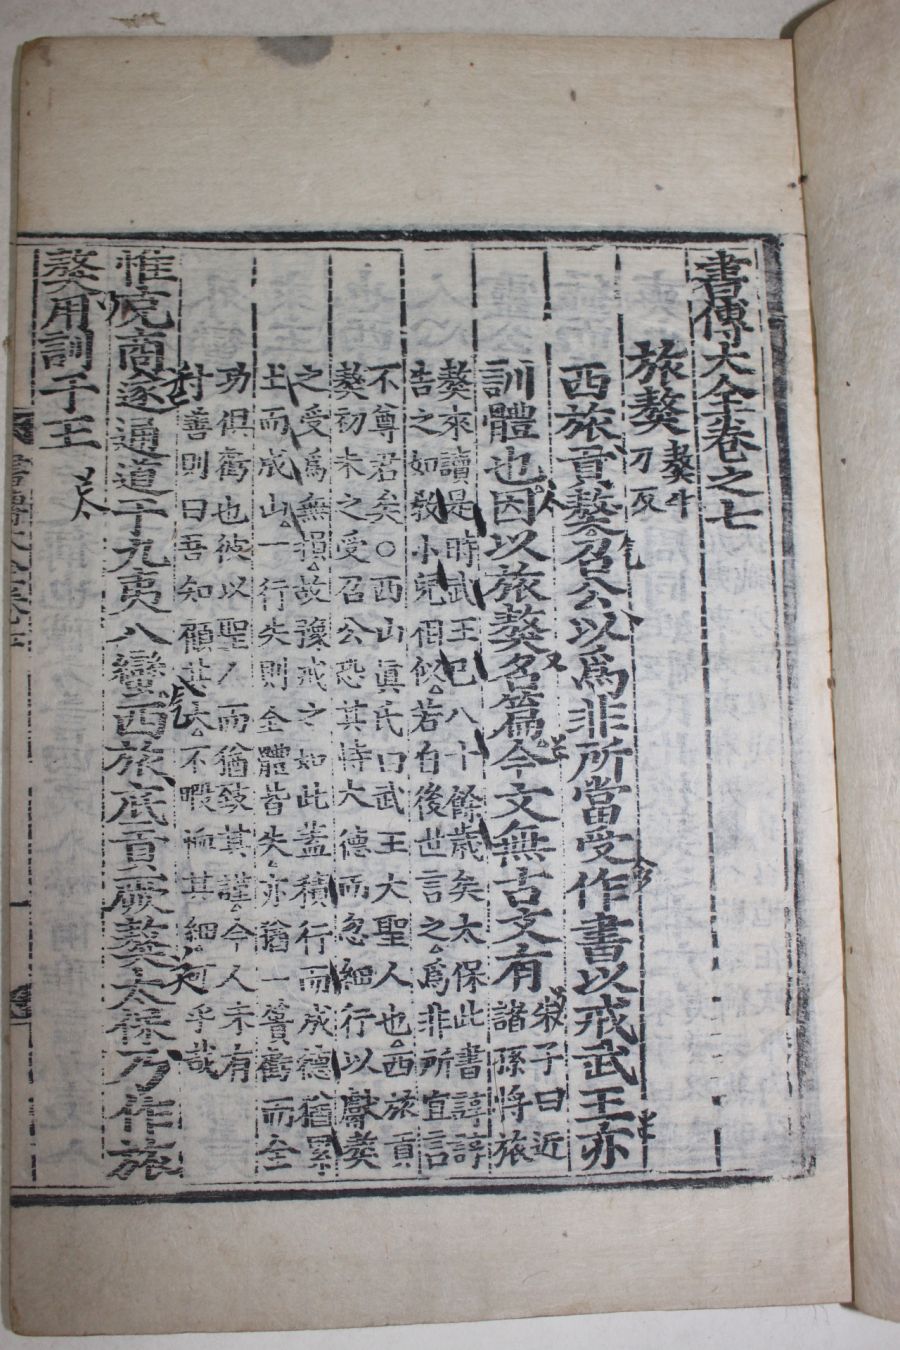 書傳大全卷之七
旅獒 獒牛
刀反
西旅貢獒召公以爲非所當受作書以戒武王亦
訓體也因以旅獒名篇今文無古文有 朱子曰近
諸孫將旅
獒來讀是時武王已八十餘歲矣太保此書諄諄
告之如教小兒相似若自後世言之爲非所宜言
不尊君矣○西山眞氏曰武王大聖人也西旅貢
獒初未之受召公恐其恃大德而忽細行以獻獒
之受爲無損故豫戒之如此蓋積行而成德猶累
土而成山一行失則全體皆失亦猶一簣虧而全
功俱虧也彼以聖人而猶致其謹今人未有
寸善則曰吾知顧其大不暇恤其細何乎哉
惟克商遂通道于九夷八蠻西旅底貢厥獒太保乃作旅
獒用訓于王